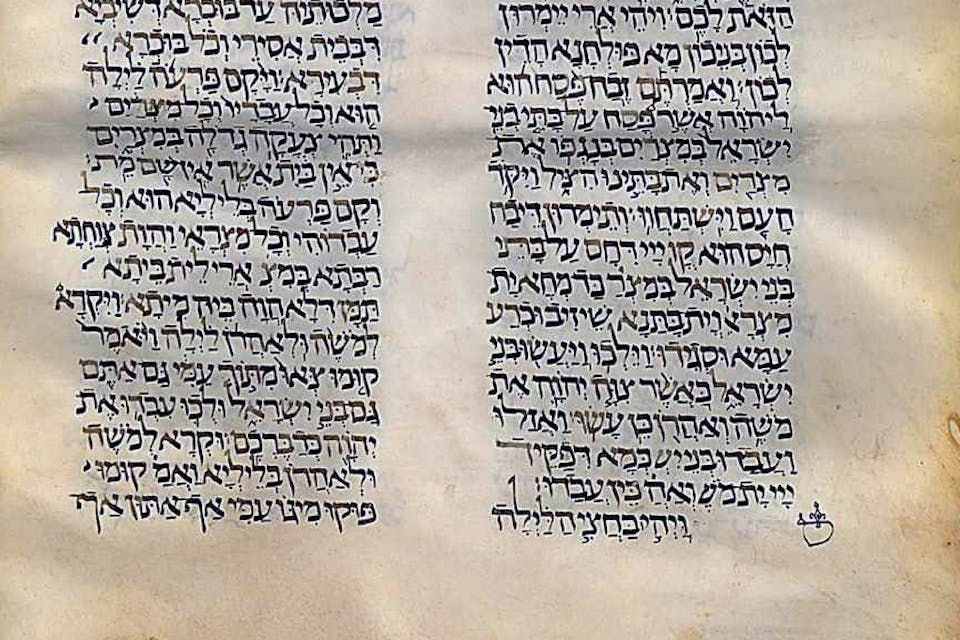 הזאת לכם ויהי ארי יימרון
לכון בניכון מא פולחנא הדין
לכון ואמרתם זבח פסח הוא
ליהוה אשר פסח על בתי בני
ישראל במצרים בנגפו את
מצרים ואת בתינו הציל ויקד
העם וישתחוו ותימרון דיבח
חייס הוא קדם ייי דחס על בתי
בני ישראל במצר כד מחא ית
מצרא וית בתנא שיזיב וכרע
עמא וסגידו וילכו ויעשו בני
ישראל כאשר צוה יהוה את
משה ואהרן כן עשו ואזלו
ועבדו בני יש כמא דפקיד
ייי ית מש ואה כין עבדו
ויהי בחצי הלילה
מלכותיה עד בוכרא דשיביא
דבבית אסירי וכל בוכרא
דבעירא ויקם פרעה לילה
הוא וכל עבדיו וכל מצרים
ותהי צעקה גדלה במצרים
כי אין בית אשר אין שם מת
וקם פרעה בליליא הוא וכל
עבדוהי וכל מצראי והות צוחתא
רבתא במצ ארי לית ביתא
תמן דלא הוה ביה מיתא ויקרא
למשה ולאהרן לילה ויאמר
קומו צאו מתוך עמי גם אתם
גם בני ישראל ולכו עבדו את
יהוה כדברכם וקרא למשה
ולאהרן בליליא ואמ קומו
פוקו מיגו עמי אף אתון אף